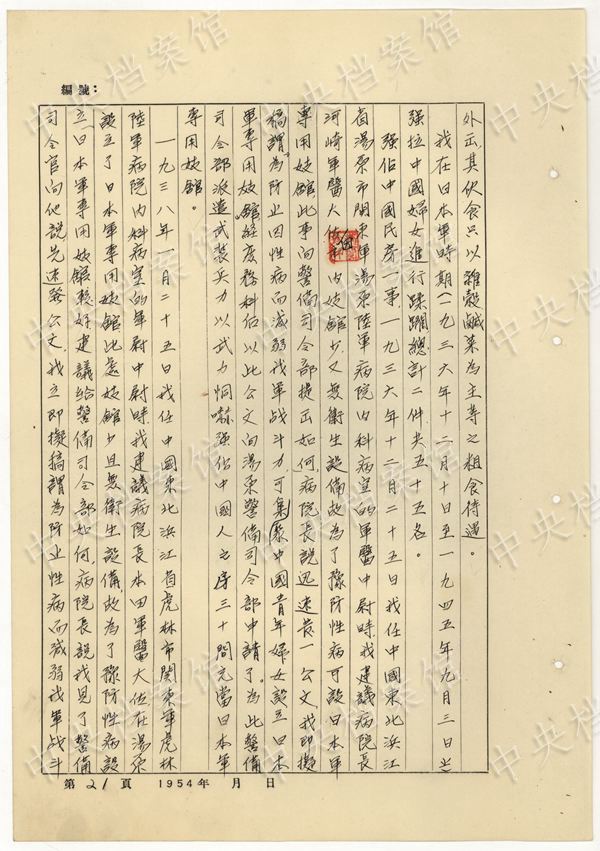 編號：
外云其伙食只以雜穀鹹菜為主等之粗食待遇。
我在日本軍時期（一九三六年十二月十日至一九四五年九月三日止）
强拉中國婦女進行蹂躙總計二件共五十五名。
强佔中國民房一事一九三六年十二月二十五日我任中國東北浜江
省湯原市関東軍湯原陸軍病院内科病室的軍醫中尉時我建議病院長
河崎軍醫大佐市内妓館少又無衛生設備故為了豫防性病可設日本軍
專用妓館此事向警備司令部提出如何，病院長說迅速發一公文，我即擬
稿謂為防止因性病而減弱我軍战斗力可集聚中國青年婦女設立日本
軍專用妓館。經庶務科佰以此公文向湯原警備司令部申請了。為此警備
司令部派遣武装兵力以武力恫嚇强佔中國人之房三十間充當日本軍
專用妓館。
一九三八年一月二十五日我任中國東北浜江省虎林市関東軍虎林
陸軍病院内科病室的軍醫中尉時我建議病院長本田軍醫大佐在湯原
設立了日本軍專用妓館此處妓館少且無衛生設備，故為了豫防性病設
立日本軍專用妓館較好建議給警備司令部如何，病院長說我見了警備
司令官向他說，先速發公文，我立即擬稿謂為防止性病而減弱我軍战斗
第21頁 1954年 月 日
中央档案馆